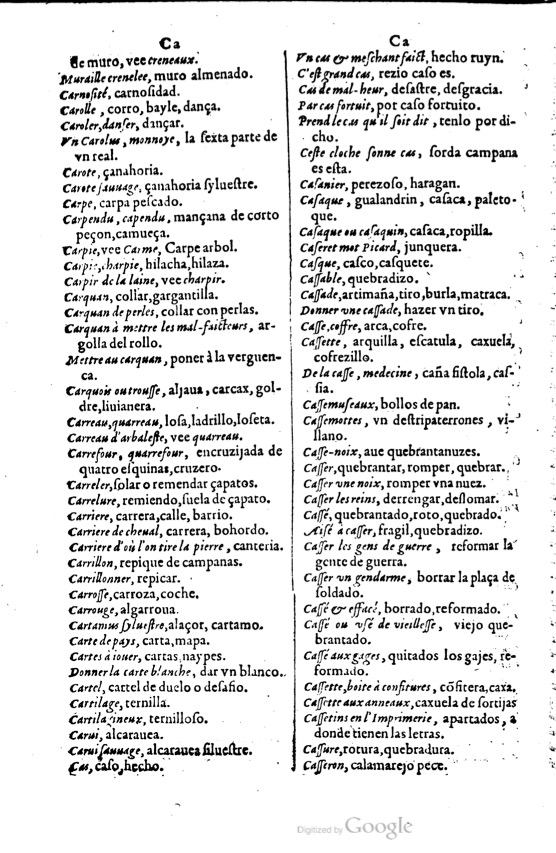 Ca
de muro, vee creneaux.
Muraille crenelee, muro almenado.
Carnosité, carnosidad.
Carolle, corro, bayle, dança.
Caroler, danſer, dançar.
Vn Carolus, monnoye, la ſexta parte de
vn real.
Carote, çanahoria.
Carote ſauuage, çanahoria ſylueſtre.
Carpe, carpa peſcado.
Carpendu, capendu, mançana de corto
peçon, camueça.
Carpie, vee Carme, Carpe arbol.
Carpie, charpie, hilacha, hilaza.
Carpir de la laine, vee charpir.
Carquan, collar, gargantilla.
Carquan de perles, collar con perlas.
Carquan à mettre les mal-faicteurs, ar-
golla del rollo.
Mettre au carquan, poner à la verguen-
ca.
Carquois ou trouſſe, aljaua, carcax, gol-
dre, liuianera.
Carreau, quarreau, loſa, ladrillo, loſeta.
Carreau d'arbaleſte, vee quarreau.
Carrefour, quarrefour, encruzijada de
quatro eſquinas, cruzero.
Carreler, ſolar o remendar çapatos.
Carrelure, remiendo, ſuela de çapato.
Carriere, carrera, calle, barrio.
Carriere de cheual, carrera, bohordo.
Carriere d'où l'on tire la pierre, canteria.
Carrillon, repique de campanas.
Carrillonner, repicar.
Carroſſe, carroza, coche.
Carrouge, algarroua.
Cartamus ſylueſtre, alaçor, cartamo.
Carte de pays, carta, mapa.
Cartes à iouer, cartas, naypes.
Donner la carte blanche, dar vn blanco.
Cartel, cartel de duelo o deſafio.
Cartilage, ternilla.
Cartilagineux, ternilloſo.
Carui, alcarauea.
Carui ſauuage, alcarauea ſilueſtre.
Cas, caſo, hecho.
Ca
Vn cas & meſchant faict, hecho ruyn.
C'eſt grand cas, rezio caſo es.
Cas de mal-heur, deſaſtre, deſgracia.
Par cas fortuit, por caſo fortuito.
Prend le cas qu'il ſoit dit, tenlo por di-
cho.
Ceſte cloche ſonne cas, ſorda campana
es eſta.
Caſanier, perezoſo, haragan.
Caſaque, gualandrin, caſaca, paleto-
que.
Caſaque ou caſaquin, caſaca, ropilla.
Caſeret mot Picard, junquera.
Caſque, caſco, caſquete.
Caſſable, quebradizo.
Caſſade, artimaña, tiro, burla, matraca.
Donner vne caſſade, hazer vn tiro.
Caſſe, coffre, arca, cofre.
Caſſette, arquilla, eſcatula, caxuela,
cofrezillo.
De la caſſe, medecine, caña fiſtola, caſ-
ſia.
Caſſemuſeaux, bollos de pan.
Caſſemottes, vn deſtripaterrones, vi-
llano.
Caſſe-noix, aue quebrantanuzes.
Caſſer, quebrantar, romper, quebrar.
Caſſer vne noix, romper vna nuez.
Caſſer les reins, derrengar, deſlomar.
Caſſé, quebrantado, roto, quebrado.
Aiſé à caſſer, fragil, quebradizo.
Caſſer les gens de guerre, reformar la
gente de guerra.
Caſſer vn gendarme, borrar la plaça de
ſoldado.
Caſſé & effacé, borrado, reformado.
Caſſé ou vſé de vieilleſſe, viejo que-
brantado.
Caſſé aux gages, quitados los gajes, re-
formado.
Caſſette, boite à confitures, cõfitera, caxa.
Caſſette aux anneaux, caxuela de ſortijas
Caſſetins en l'Imprimerie, apartados, a
donde tienen las letras.
Caſſure, rotura, quebradura.
Caſſeron, calamarejo pece.
Digitized by Google